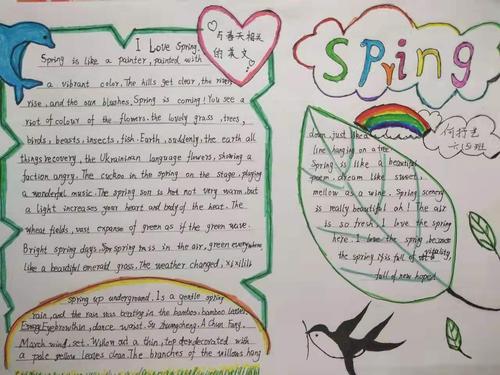 I Love Spring.
Spring is like a painter, painted with
a vibrant color. The hills get clear, the river
rise, and the sun blushes, Spring is coming! You see a
riot of colour of the flowers. the lovely grass, trees,
birds, beasts, insects, fish. Earth, suddenly, the earth all
things recovery, the Ukrainian language flowers, showing a
faction angry. The cuckoo in the spring on the stage, playing
a wonderful music. The spring son is hot not very warm, but
a light increases your heart and body of the heat. The
wheat fields, vast expanse of green as if the green wave.
Bright spring days. Sprspring in is in the air, green everywhere
like a beautiful emerald grass. The weather changed, xixilili
spring up underground. Is a gentle spring
rain, and the rain was beating in the bamboo. bamboo leaves.
Eyebrowthin, dance waist. Su zhangcheng. A Chun Fang.
March wind, set. Willow out a thin, top decorated with
a pale yellow leaves clean. The branches of the willows hang
与春天相关
的英文
Spring
何打艺
六四班
down, just like a
line hanging on a tree
Spring is like a beautiful
poem. dream like sweet,
mellow as a wine. Spring scenery
is really beautiful ah! The air
is so fresh. I love the spring
here. I love the spring, because
the spring is full of vitality,
full of new hope!